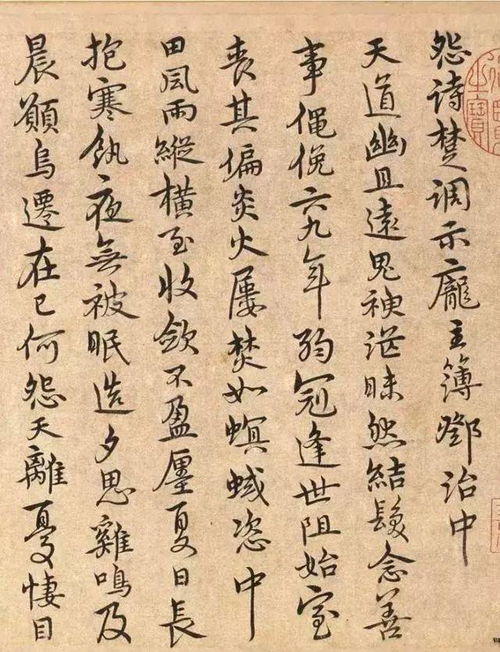 怨詩楚調示龐主簿鄧治中
天道幽且遠鬼神茫昧然結髮念善
事僶俛六九年弱冠逢世阻始室
喪其偏炎火屢焚如螟蜮恣中
田風雨縱橫至收斂不盈廛夏日長
抱寒飢夜無被眠造夕思雞鳴及
晨願烏遷在己何怨天離憂悽目
之寶